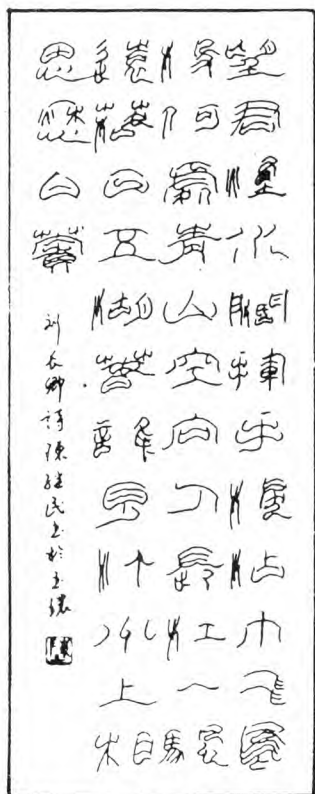 望君煙水闊揮手淚沾巾飛鳥
沒何處青山空向人長江一帆
遠落日五湖春誰見汀洲上相
思愁白蘋
刘长卿詩陳继民书於玉環